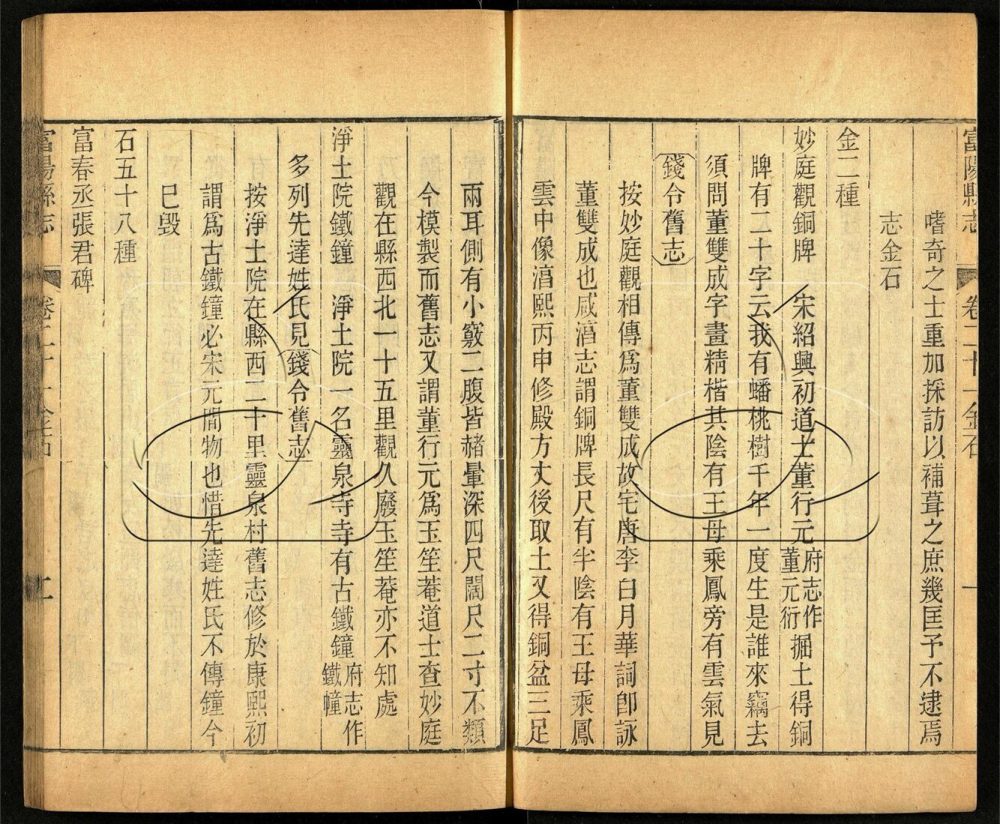 富陽縣志 卷二十一 金石 一
嗜奇之士重加採訪以補葺之庶幾匡予不逮焉
志金石
金二種
妙庭觀銅牌 宋紹興初道士董行元府志作董元衍掘土得銅
牌有二十字云我有蟠桃樹千年一度生是誰來竊去
須問董雙成字畫精楷其陰有王母乘鳳旁有雲氣見
錢令舊志
按妙庭觀相傳爲董雙成故宅唐李白月華詞卽詠
董雙成也咸湻志謂銅牌長尺有半陰有王母乘鳳
雲中像湻熙丙申修殿方丈後取土又得銅盆三足
兩耳側有小竅二腹皆赭暈深四尺闊尺二寸不類
今模製而舊志又謂董行元爲玉笙菴道士查妙庭
觀在縣西北一十五里觀久廢玉笙菴亦不知處
淨土院鐵鐘 淨土院一名靈泉寺寺有古鐵鐘府志作鐵幢
多列先達姓氏見錢令舊志
按淨土院在縣西二十里靈泉村舊志修於康熙初
謂爲古鐵鐘必宋元間物也惜先達姓氏不傳鐘今
已毀
石五十八種
富春丞張君碑
富陽縣志